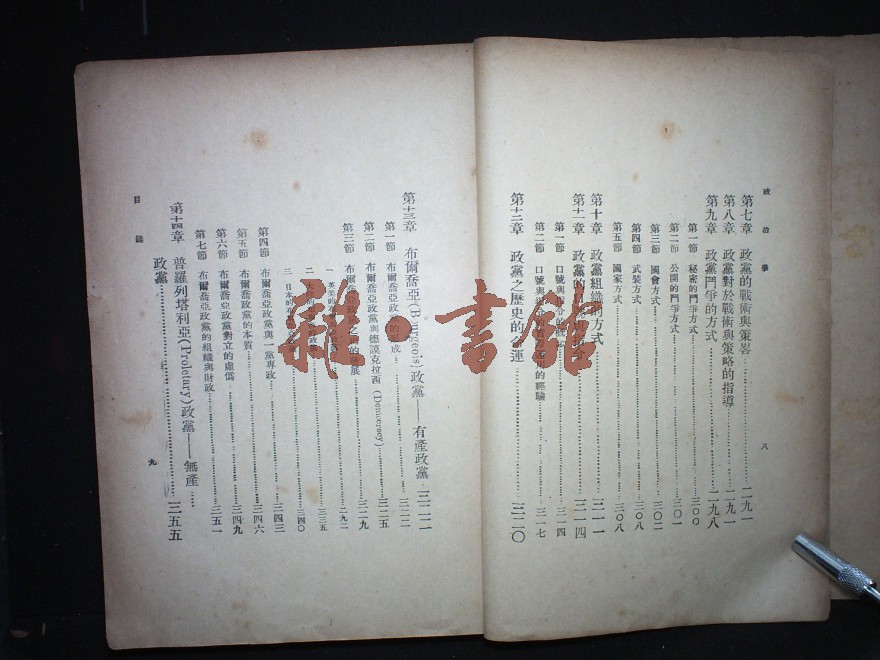 政治學
八
第七章　政黨的戰術與策畧……二九一
第八章　政黨對於戰術與策略的指導……二九一
第九章　政黨鬥爭的方式……二九八
第一節　秘密的鬥爭方式……三〇〇
第二節　公開的鬥爭方式……三〇一
第三節　國會方式……三〇二
第四節　武裝方式……三〇八
第五節　國家方式……三〇八
第十章　政黨組織的方式……三一一
第十一章　政黨的……三一四
第一節　口號與……三一四
第二節　口號與……的經驗……三一七
第十二章　政黨之歷史的命運……三二〇
第十三章　布爾喬亞(Bourgeois)政黨——有產政黨…三二二
第一節　布爾喬亞政黨的形成……三二二
第二節　布爾喬亞政黨與德謨克拉西(Democrsey)……三二五
第三節　布爾喬亞政黨之……的發展……三二九
一　英美的……二九二
二　大……三三五
三　日本的……三四〇
第四節　布爾喬亞政黨與一黨專政……三四三
第五節　布爾喬亞政黨的本質……三四六
第六節　布爾喬亞政黨對立的虛僞……三四九
第七節　布爾喬亞政黨的組織與財政……三五一
第十四章　普羅列塔利亞(Proletary)政黨——無產……
政黨……三五五
目錄
九
雜·書館